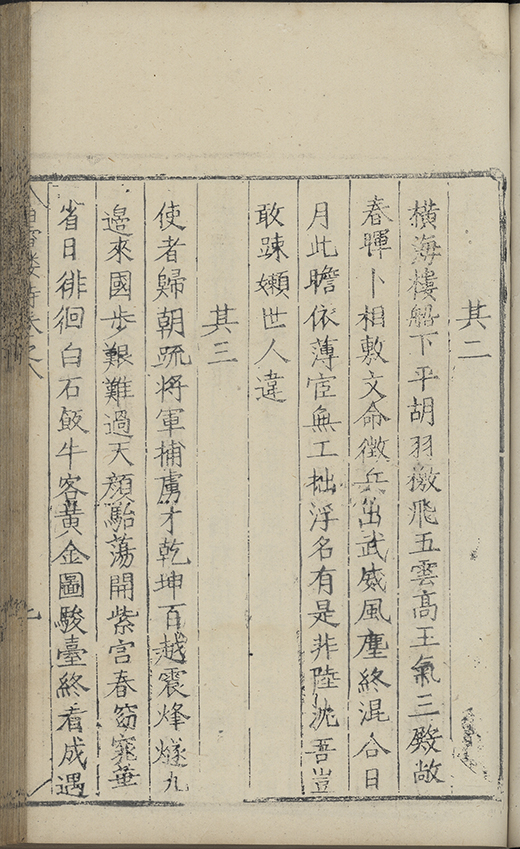 其二
橫海樓船下平胡羽檄飛五雲高王氣三殿敞
春暉卜相敷文命徵兵出武威風塵終混合日
月此瞻依薄宦無工拙浮名有是非陸沈吾豈
敢踈嬾世人違
其三
使者歸朝疏將軍捕虜才乾坤百越震烽燧九
邊來國步艱難過天顏駘蕩開紫宮春窈窕華
省日徘徊白石飯牛客黃金圖駿臺終看成遇
白雪樓詩卷之八